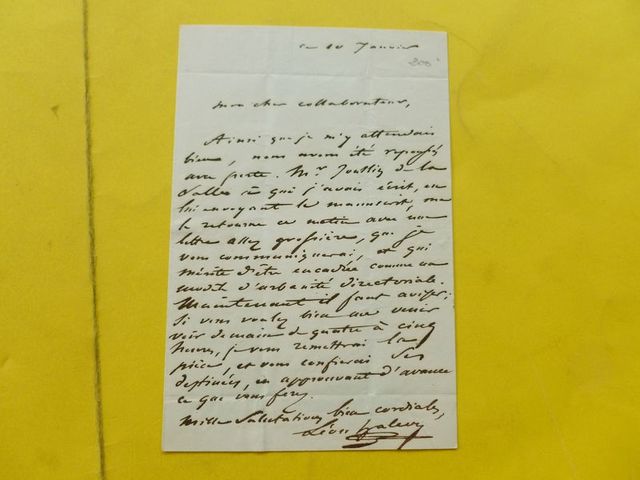 ce 10 Janvier
200
mon cher collaborateur,
Ainsi que je m'y attendais
bien, nous avons été repoussés
avec perte. Mr. Jouslin de la
Salle à qui j'avais écrit, en
lui envoyant le manuscrit, me
le retourne ce matin avec une
lettre assez grossière, que je
vous communiquerai, et qui
mérite d'être encadrée comme un
modèle d'urbanité directoriale.
Maintenant il faut aviser;
Si vous voulez bien me venir
voir demain de quatre à cinq
heures, je vous remettrai la
pièce, et vous confierai ses
destinées, en approuvant d'avance
ce que vous ferez.
Mille Salutations bien cordiales,
Léon Halevy